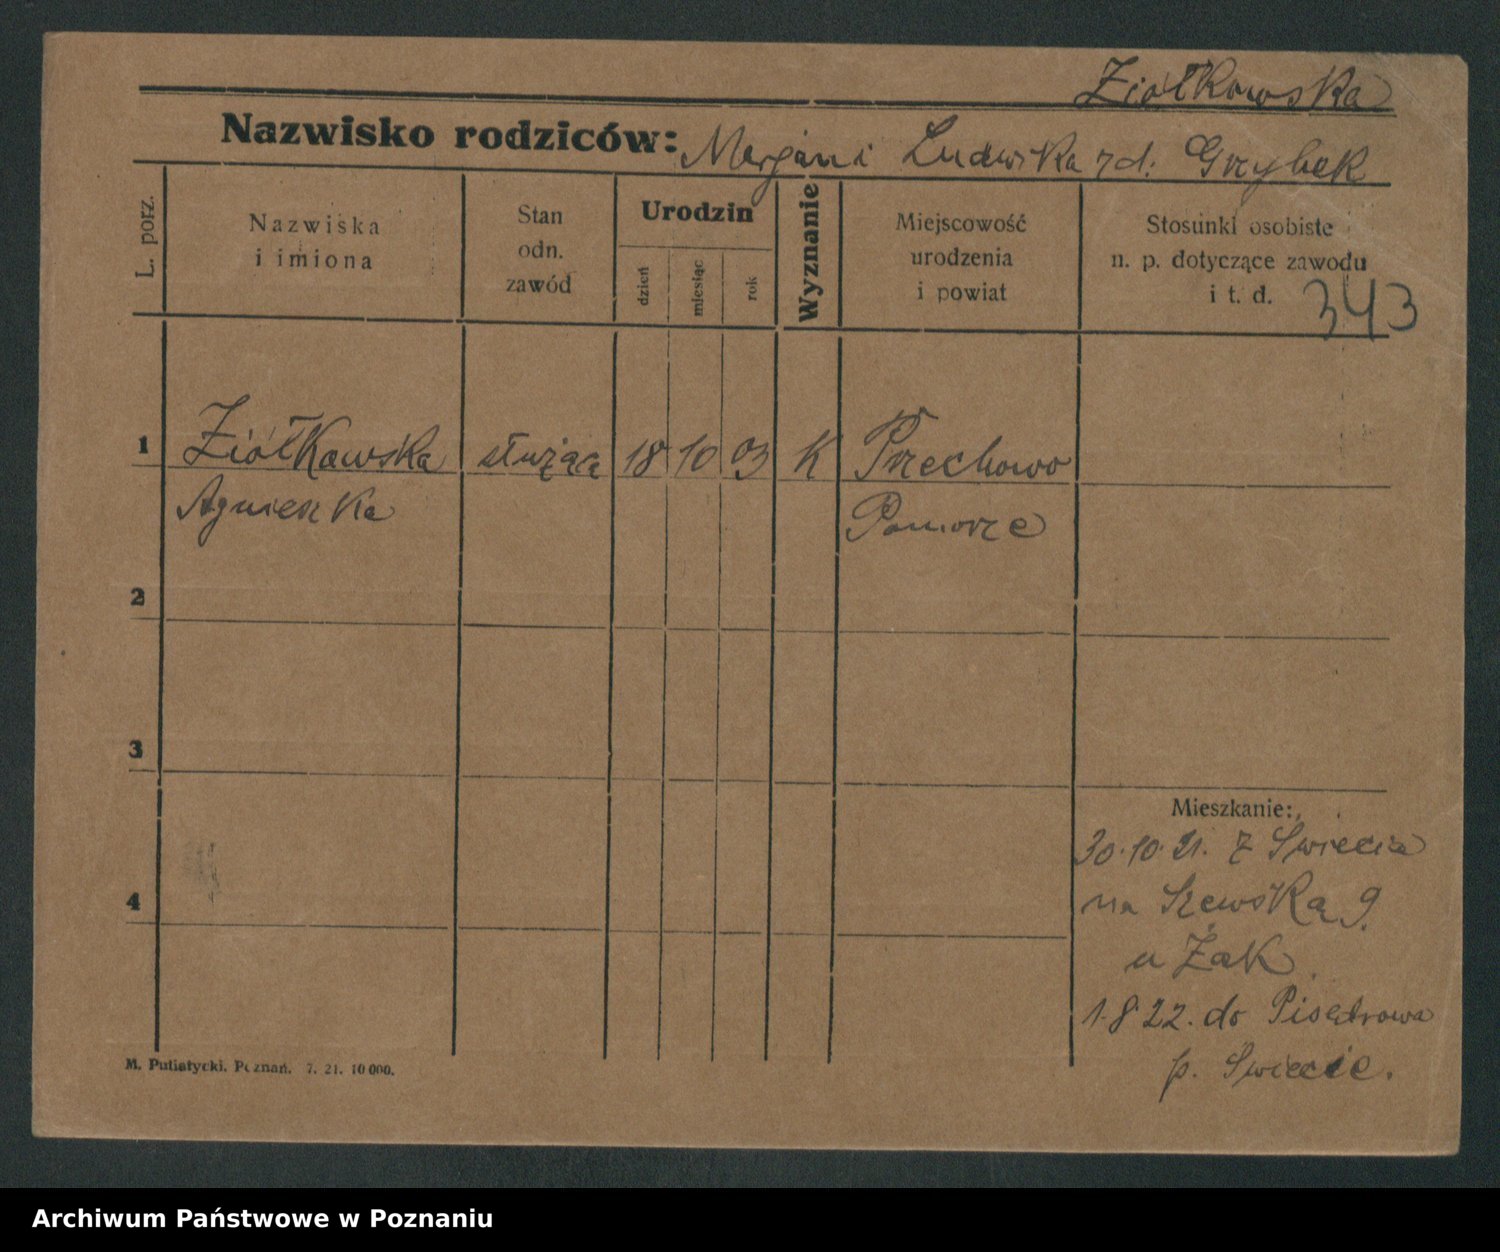 Ziółkowska
Nazwisko rodziców: Marjan i Ludwika zd. Grzybek
L. porz.
Nazwiska
i imiona
Stan
odn.
zawód
Urodzin
dzień
miesiąc
rok
Wyznanie
Miejscowość
urodzenia
i powiat
Stosunki osobiste
n. p. dotyczące zawodu
i t. d.
343
1 Ziółkowska służąca 18 10 03 K Przechowo
Agnieszka Pomorze
2
3
Mieszkanie:
30.10.21. z Świecia
na Szewską 9.
4
u Żak
1.8.22. do
p. Świecie.
M. Putiatycki. Poznań. 7. 21. 10 000.
Archiwum Państwowe w Poznaniu